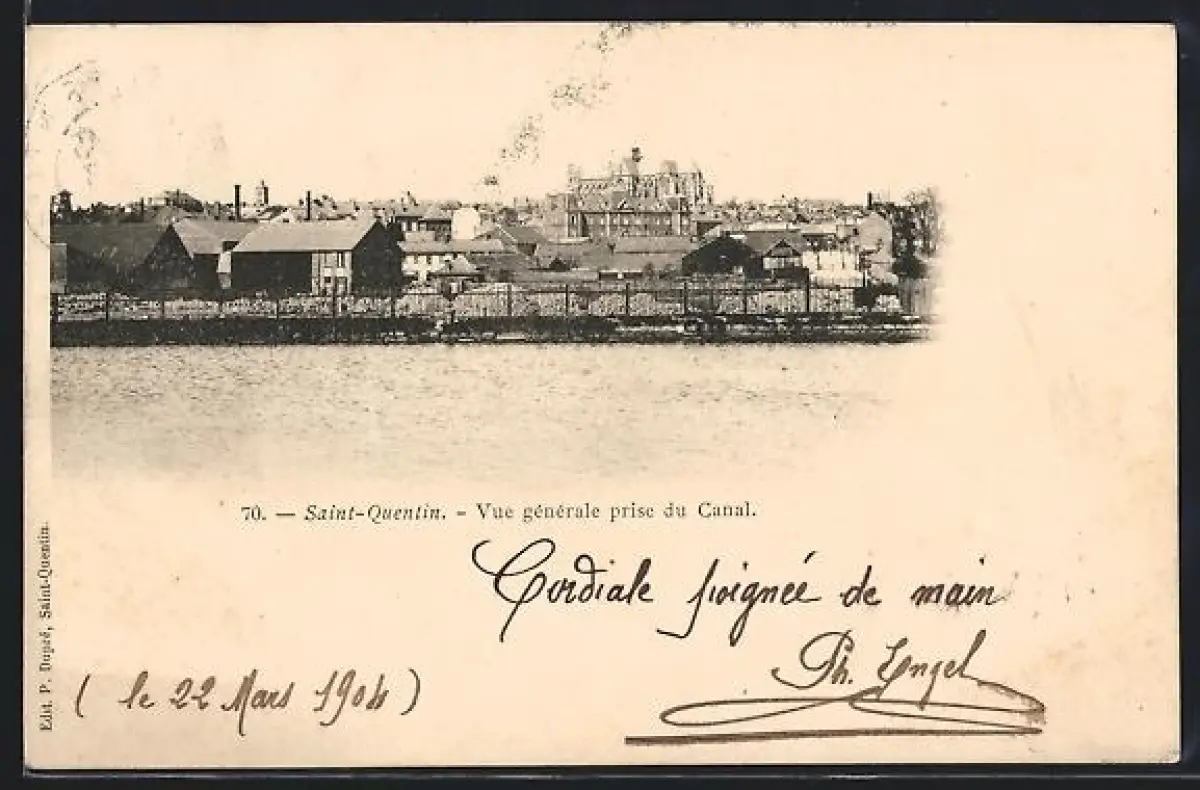 70. — Saint-Quentin. - Vue générale prise du Canal.
Cordiale poignée de main
Ph. Engel
( le 22 Mars 1904 )
Edit. P. Dupré, Saint-Quentin.